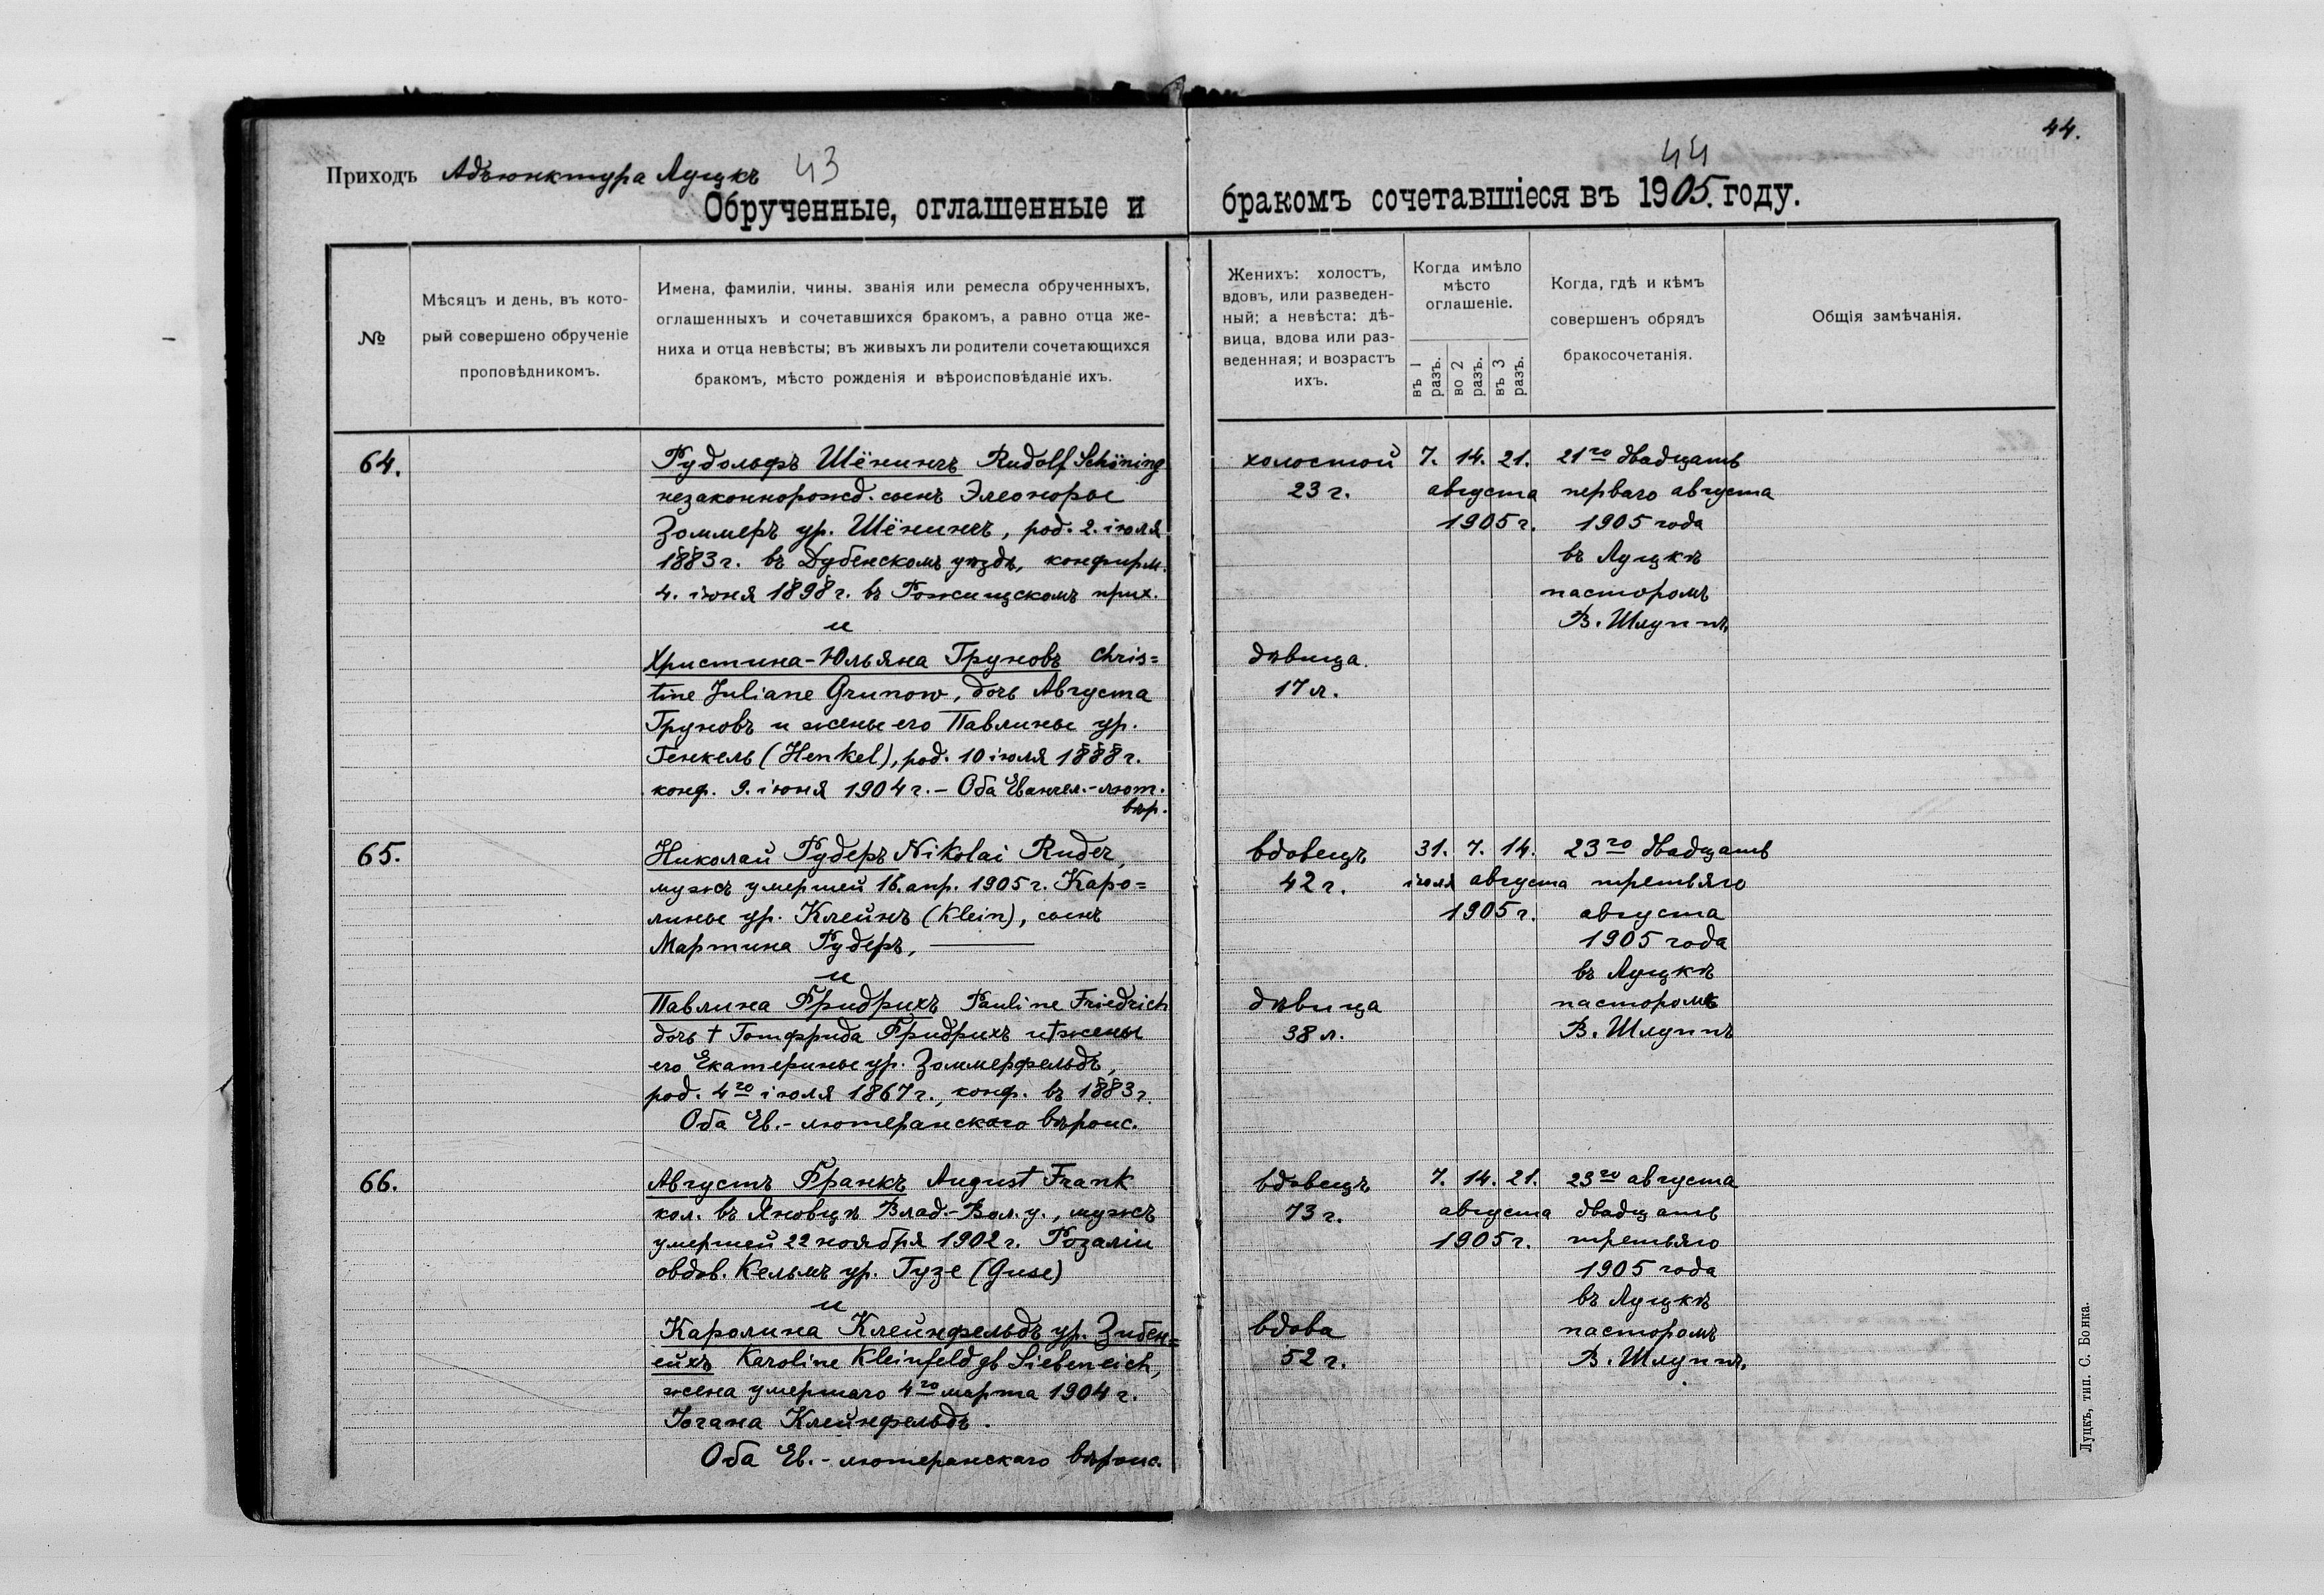 44.
Приходъ Адъюнктура Луцкъ 43
44
Обрученные, оглашенные и
бракомъ сочетавшіеся въ 1905. году.
№
Мѣсяцъ и день, въ кото-
рый совершено обрученіе
проповѣдникомъ.
Имена, фамиліи, чины, званія или ремесла обрученныхъ,
оглашенныхъ и сочетавшихся бракомъ, а равно отца же-
ниха и отца невѣсты; въ живыхъ ли родители сочетающихся
бракомъ, мѣсто рожденія и вѣроисповѣданіе ихъ.
Женихъ: холостъ,
вдовъ, или разведен-
ный; а невѣста: дѣ-
вица, вдова или раз-
веденная; и возрастъ
ихъ.
Когда имѣло
мѣсто
оглашеніе.
въ 1
разъ.
во 2
разъ.
въ 3
разъ.
Когда, гдѣ и кѣмъ
совершенъ обрядъ
бракосочетанія.
Общія замѣчанія.
64.
Рудольфъ Шёнингъ Rudolf Schöning
незаконнорожд. сынъ Элеоноры
Зоммеръ ур. Шёнингъ, род. 2. іюля
1883 г. въ Дубенскомъ уѣздѣ, конфирм.
4. іюня 1898 г. въ Рожищскомъ прих.
и
Христина-Юльяна Груновъ Chris=
tine Juliane Grunow, дочь Августа
Груновъ и жены его Павлины ур.
Генкель (Henkel), род. 10 іюля 1888 г.
конф. 9. іюня 1904 г. – Оба Евангел.-лют.
вѣр.
холостой
23 г.
дѣвица.
17 л.
7. 14. 21.
августа
1905 г.
21го двадцать
перваго августа
1905 года
въ Луцкѣ
пасторомъ
В. Шлуппъ.
65.
Николай Рудеръ Nikolai Ruder,
мужъ умершей 16. апр. 1905 г. Каро=
лины ур. Клейнъ (Klein), сынъ
Мартина Рудеръ, ———
и
Павлина Фридрихъ Pauline Friedrich
дочь † Готфрида Фридрихъ и † жены
его Екатерины ур. Зоммерфельдъ,
род. 4го іюля 1867 г., конф. въ 1883 г.
Оба Ев.- лютеранскаго вѣроис.
вдовецъ
42 г.
дѣвица
38 л.
31. 7. 14.
іюля августа
1905 г.
23го двадцать
третьяго
августа
1905 года
въ Луцкѣ
пасторомъ
В. Шлуппъ
66.
Августъ Франкъ August Frank
кол. въ Яновцѣ Влад.-Вол. у., мужъ
умершей 22 ноября 1902 г. Розаліи
овдов. Кельмъ ур. Гузе (Guse)
и
Каролина Клейнфельдъ ур. Зибен=
ейхъ Karoline Kleinfeld gb Siebeneich,
жена умершаго 4го марта 1904 г.
Іогана Клейнфельдъ.
Оба Ев. - лютеранскаго вѣроис.
вдовецъ
73 г.
вдова
52 г.
7. 14. 21.
августа
1905 г.
23го августа
двадцать
третьяго
1905 года
въ Луцкѣ
пасторомъ
В. Шлуппъ.
Луцкъ, тип. С. Бонка.